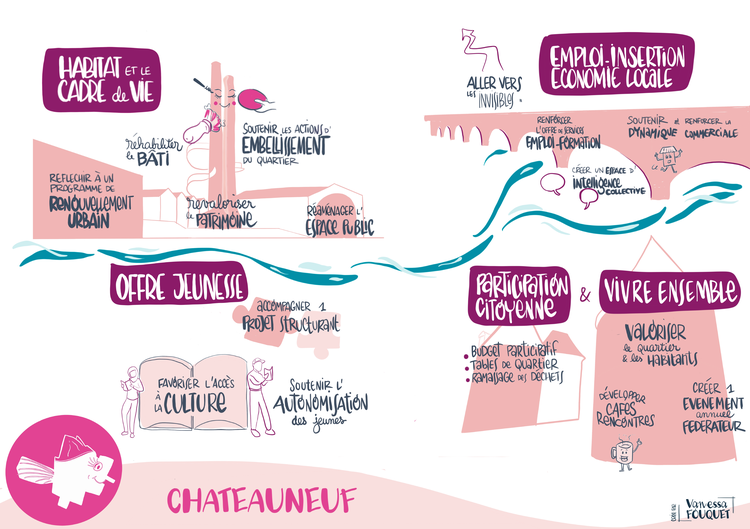 HABITAT ET LE
CADRE de VIE
réhabiliter
le BÂTI
SOUTENIR LES ACTIONS D'
EMBELLISSEMENT
DU QUARTIER
REFLECHIR À UN
PROGRAMME DE
RENOUVELLEMENT
URBAIN
revaloriser
le PATRIMOINE
RÉAMÉNAGER L'
ESPACE PUBLIC
EMPLOI-INSERTION
ECONOMIE LOCALE
ALLER VERS
LES INVISIBLES
RENFORCER
L'OFFRE DE SERVICES
EMPLOI-FORMATION
SOUTENIR et RENFORCER LA
DYNAMIQUE COMMERCIALE
CRÉER UN ESPACE D'
INTELLIGENCE
COLLECTIVE
OFFRE JEUNESSE
ACCOMPAGNER 1
PROJET STRUCTURANT
FAVORISER L'ACCÈS
À LA CULTURE
SOUTENIR L'
AUTONOMISATION
des jeunes
PARTICIPATION
CITOYENNE
&
VIVRE ENSEMBLE
• BUDGET PARTICIPATIF
• TABLES DE QUARTIER
• RAMASSAGE DES DÉCHETS
VALORISER
le QUARTIER
& les HABITANTS
DÉVELOPPER
CAFES
RENCONTRES
CRÉER 1
EVENEMENT
annuel
FEDERATEUR
CHATEAUNEUF
Vanessa
FOUQUET